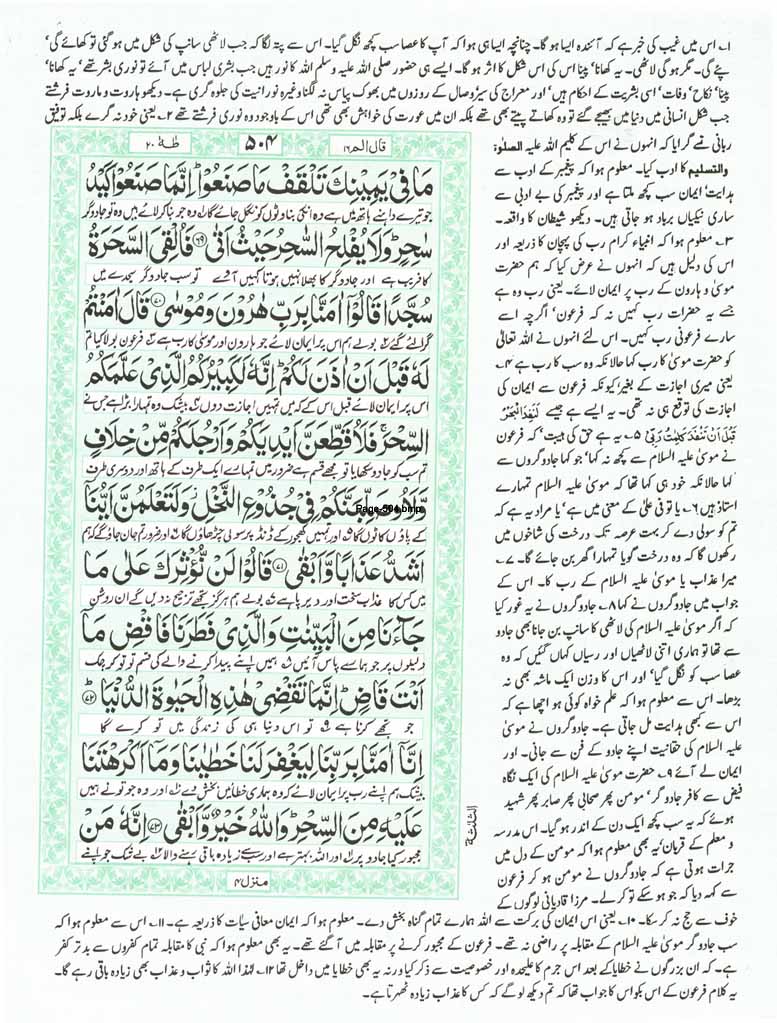 ۱۔ اس میں غیب کی خبر ہے کہ آئندہ ایسا ہو گا۔ چنانچہ ایسا ہی ہوا کہ آپ کا عصا سب کچھ نگل گیا۔ اس سے پتہ لگا کہ جب لاٹھی سانپ کی شکل میں ہو گئی تو کھائے گی‘
پئے گی۔ مگر ہو گی لاٹھی۔ یہ کھانا‘ پینا اس کی اس شکل کا اثر ہو گا۔ ایسے ہی حضور صلی اللہ علیہ وسلم اللہ کا نور ہیں جب بشری لباس میں آئے تو نوری بشر تھے‘ یہ کھانا‘
پینا‘ نکاح‘ وفات‘ اسی بشریت کے احکام ہیں‘ اور معراج کی سیر و وصال کے روزوں میں بھوک پیاس نہ لگنا وغیرہ نورانیت کی جلوہ گری ہے۔ دیکھو ہاروت و ماروت فرشتے
جب شکل انسانی میں دنیا میں بھیجے گئے تو وہ کھاتے پیتے بھی تھے بلکہ ان میں عورت کی خواہش بھی تھی اس کے باوجود وہ نوری فرشتے تھے ۲۔ یعنی خود نہ گرے بلکہ توفیق
ربانی سے گرایا کہ انہوں نے اس کے کلیم اللہ علیہ الصلوٰۃ
والتسلیم کا ادب کیا۔ معلوم ہوا کہ پیغمبر کے ادب سے
ہدایت‘ ایمان سب کچھ ملتا ہے اور پیغمبر کی بے ادبی سے
ساری نیکیاں برباد ہو جاتی ہیں۔ دیکھو شیطان کا واقعہ۔
۳۔ معلوم ہوا کہ انبیاء کرام رب کی پہچان کا ذریعہ اور
اس کی دلیل ہیں کہ انہوں نے عرض کیا کہ ہم حضرت
موسیٰ و ہارون کے رب پر ایمان لائے۔ یعنی رب وہ ہے
جسے یہ حضرات رب کہیں نہ کہ فرعون‘ اگرچہ اسے
سارے فرعونی رب کہیں۔ اس لئے انہوں نے اللہ تعالیٰ
کو حضرت موسیٰ کا رب کہا حالانکہ وہ سب کا رب ہے ۴۔
یعنی میری اجازت کے بغیر کیونکہ فرعون سے ایمان کی
اجازت کی توقع ہی نہ تھی۔ یہ ایسے ہے جیسے لَنَفِدَ الْبَحْرُ
قَبْلَ اَنْ تَنْفَدَ كَلِمٰتُ رَبِّىْ ۵۔ یہ ہے حق کی ہیبت‘ کہ فرعون
نے موسیٰ علیہ السلام سے کچھ نہ کہا‘ جو کہا جادوگروں سے
کہا حالانکہ خود ہی کہا تھا کہ موسیٰ علیہ السلام تمہارے
استاذ ہیں ۶۔ یا تو فی علیٰ کے معنی میں ہے‘ یا مراد یہ ہے کہ
تم کو سولی دے کر بہت عرصہ تک درخت کی شاخوں میں
رکھوں گا کہ وہ درخت گویا تمہارا گھر بن جائے گا۔ ۷۔
میرا عذاب یا موسیٰ علیہ السلام کے رب کا۔ اس کے
جواب میں جادوگروں نے کہا ۸۔ جادوگروں نے یہ غور کیا
کہ اگر موسیٰ علیہ السلام کی لاٹھی کا سانپ بن جانا بھی جادو
سے تھا تو ہماری اتنی لاٹھیاں اور رسیاں کہاں گئیں کہ وہ
عصا سب کو نگل گیا‘ اور اس کا وزن ایک ماشہ بھی نہ
بڑھا۔ اس سے معلوم ہوا کہ علم خواہ کوئی ہو اچھا ہے کہ
اس سے کبھی ہدایت مل جاتی ہے۔ جادوگروں نے موسیٰ
علیہ السلام کی حقانیت اپنے جادو کے فن سے جانی۔ اور
ایمان لے آئے ۹۔ حضرت موسیٰ علیہ السلام کی ایک نگاہ
فیض سے کافر جادوگر‘ مومن پھر صحابی پھر صابر پھر شہید
ہوئے کہ یہ سب کچھ ایک دن کے اندر ہو گیا۔ اس مدرسہ
و معلم کے قربان‘ یہ بھی معلوم ہوا کہ مومن کے دل میں
جرات ہوتی ہے کہ جادوگروں نے مومن ہو کر فرعون
سے کہہ دیا کہ جو ہو سکے تو کرلے۔ مرزا قادیانی لوگوں کے
قال الم ۱۶
۵۰۴
طٰہٰ ۲۰
مَا فِیْ یَمِیْنِكَ تَلْقَفْ مَا صَنَعُوْا ؕ اِنَّمَا صَنَعُوْا كَیْدُ
جو تیرے داہنے ہاتھ میں ہے وہ انکی بناوٹوں کو نگل جائے گا وہ جو بنا کر لائے ہیں وہ تو جادوگر
سٰحِرٍ ؕ وَلَا یُفْلِحُ السّٰحِرُ حَیْثُ اَتٰی ﴿۶۹﴾ فَاُلْقِیَ السَّحَرَةُ
کا فریب ہے اور جادوگر کا بھلا نہیں ہوتا کہیں آوے تو سب جادوگر سجدے میں
سُجَّدًا قَالُوْۤا اٰمَنَّا بِرَبِّ هٰرُوْنَ وَمُوْسٰی ﴿۷۰﴾ قَالَ اٰمَنْتُمْ
گرا لئے گئے بولے ہم اس پر ایمان لائے جو ہارون اور موسیٰ کا رب ہے فرعون بولا کیا تم
لَهٗ قَبْلَ اَنْ اٰذَنَ لَكُمْ ؕ اِنَّهٗ لَكَبِیْرُكُمُ الَّذِیْ عَلَّمَكُمُ
اس پر ایمان لائے قبل اس کے کہ میں تمہیں اجازت دوں بیشک وہ تمہارا بڑا ہے جس نے
السِّحْرَ ۚ فَلَاُقَطِّعَنَّ اَیْدِیَكُمْ وَاَرْجُلَكُمْ مِّنْ خِلَافٍ
تم سب کو جادو سکھایا تو مجھے قسم ہے ضرور میں تمہارے ایک طرف کے ہاتھ اور دوسری طرف
وَّلَاُوصَلِّبَنَّكُمْ فِیْ جُذُوْعِ النَّخْلِ ؗ وَلَتَعْلَمُنَّ اَیُّنَاۤ
Page-504.bmp
کے پاؤں کاٹوں گا اور تمہیں کھجور کے ڈنڈ پر سولی چڑھاؤں گا اور ضرور تم جان جاؤ گے کہ ہم
اَشَدُّ عَذَابًا وَّاَبْقٰی ﴿۷۱﴾ قَالُوْا لَنْ نُّؤْثِرَكَ عَلٰی مَا
میں کس کا عذاب سخت اور دیرپا ہے بولے ہم ہرگز تجھے ترجیح نہ دیں گے ان روشن
جَآءَنَا مِنَ الْبَیِّنٰتِ وَالَّذِیْ فَطَرَنَا فَاقْضِ مَاۤ
دلیلوں پر جو ہمارے پاس آئیں ہمیں اپنے پیدا کرنے والے کی قسم تو تو کر چک
اَنْتَ قَاضٍ ؕ اِنَّمَا تَقْضِیْ هٰذِهِ الْحَیٰوةَ الدُّنْیَا ﴿۷۲﴾
جو تجھے کرنا ہے تو اس دنیا ہی کی زندگی میں تو کرے گا
اِنَّاۤ اٰمَنَّا بِرَبِّنَا لِیَغْفِرَ لَنَا خَطٰیٰنَا وَمَاۤ اَكْرَهْتَنَا
بیشک ہم اپنے رب پر ایمان لائے کہ وہ ہماری خطائیں بخش دے اور وہ جو تو نے ہمیں
عَلَیْهِ مِنَ السِّحْرِ ؕ وَاللّٰهُ خَیْرٌ وَّاَبْقٰی ﴿۷۳﴾ اِنَّهٗ مَنْ
مجبور کیا جادو پر اور اللہ بہتر ہے اور سب سے زیادہ باقی رہنے والا بے شک جو اپنے
منزل ۴
الثلٰثة
خوف سے حج نہ کر سکا۔ ۱۰۔ یعنی اس ایمان کی برکت سے اللہ ہمارے تمام گناہ بخش دے۔ معلوم ہوا کہ ایمان معافی سیأت کا ذریعہ ہے۔ ۱۱۔ اس سے معلوم ہوا کہ
سب جادوگر موسیٰ علیہ السلام کے مقابلہ پر راضی نہ تھے۔ فرعون کے مجبور کرنے پر مقابلہ میں آ گئے تھے۔ یہ بھی معلوم ہوا کہ نبی کا مقابلہ تمام کفروں سے بدتر کفر
ہے۔ کہ ان بزرگوں نے خطایا کے بعد اس جرم کا علیحدہ اور خصوصیت سے ذکر کیا ورنہ یہ بھی خطایا میں داخل تھا ۱۲۔ لہٰذا اللہ کا ثواب و عذاب بھی زیادہ باقی رہے گا۔
یہ کلام فرعون کے اس بکواس کا جواب تھا کہ تم دیکھ لو گے کہ کس کا عذاب زیادہ ٹھہرتا ہے۔